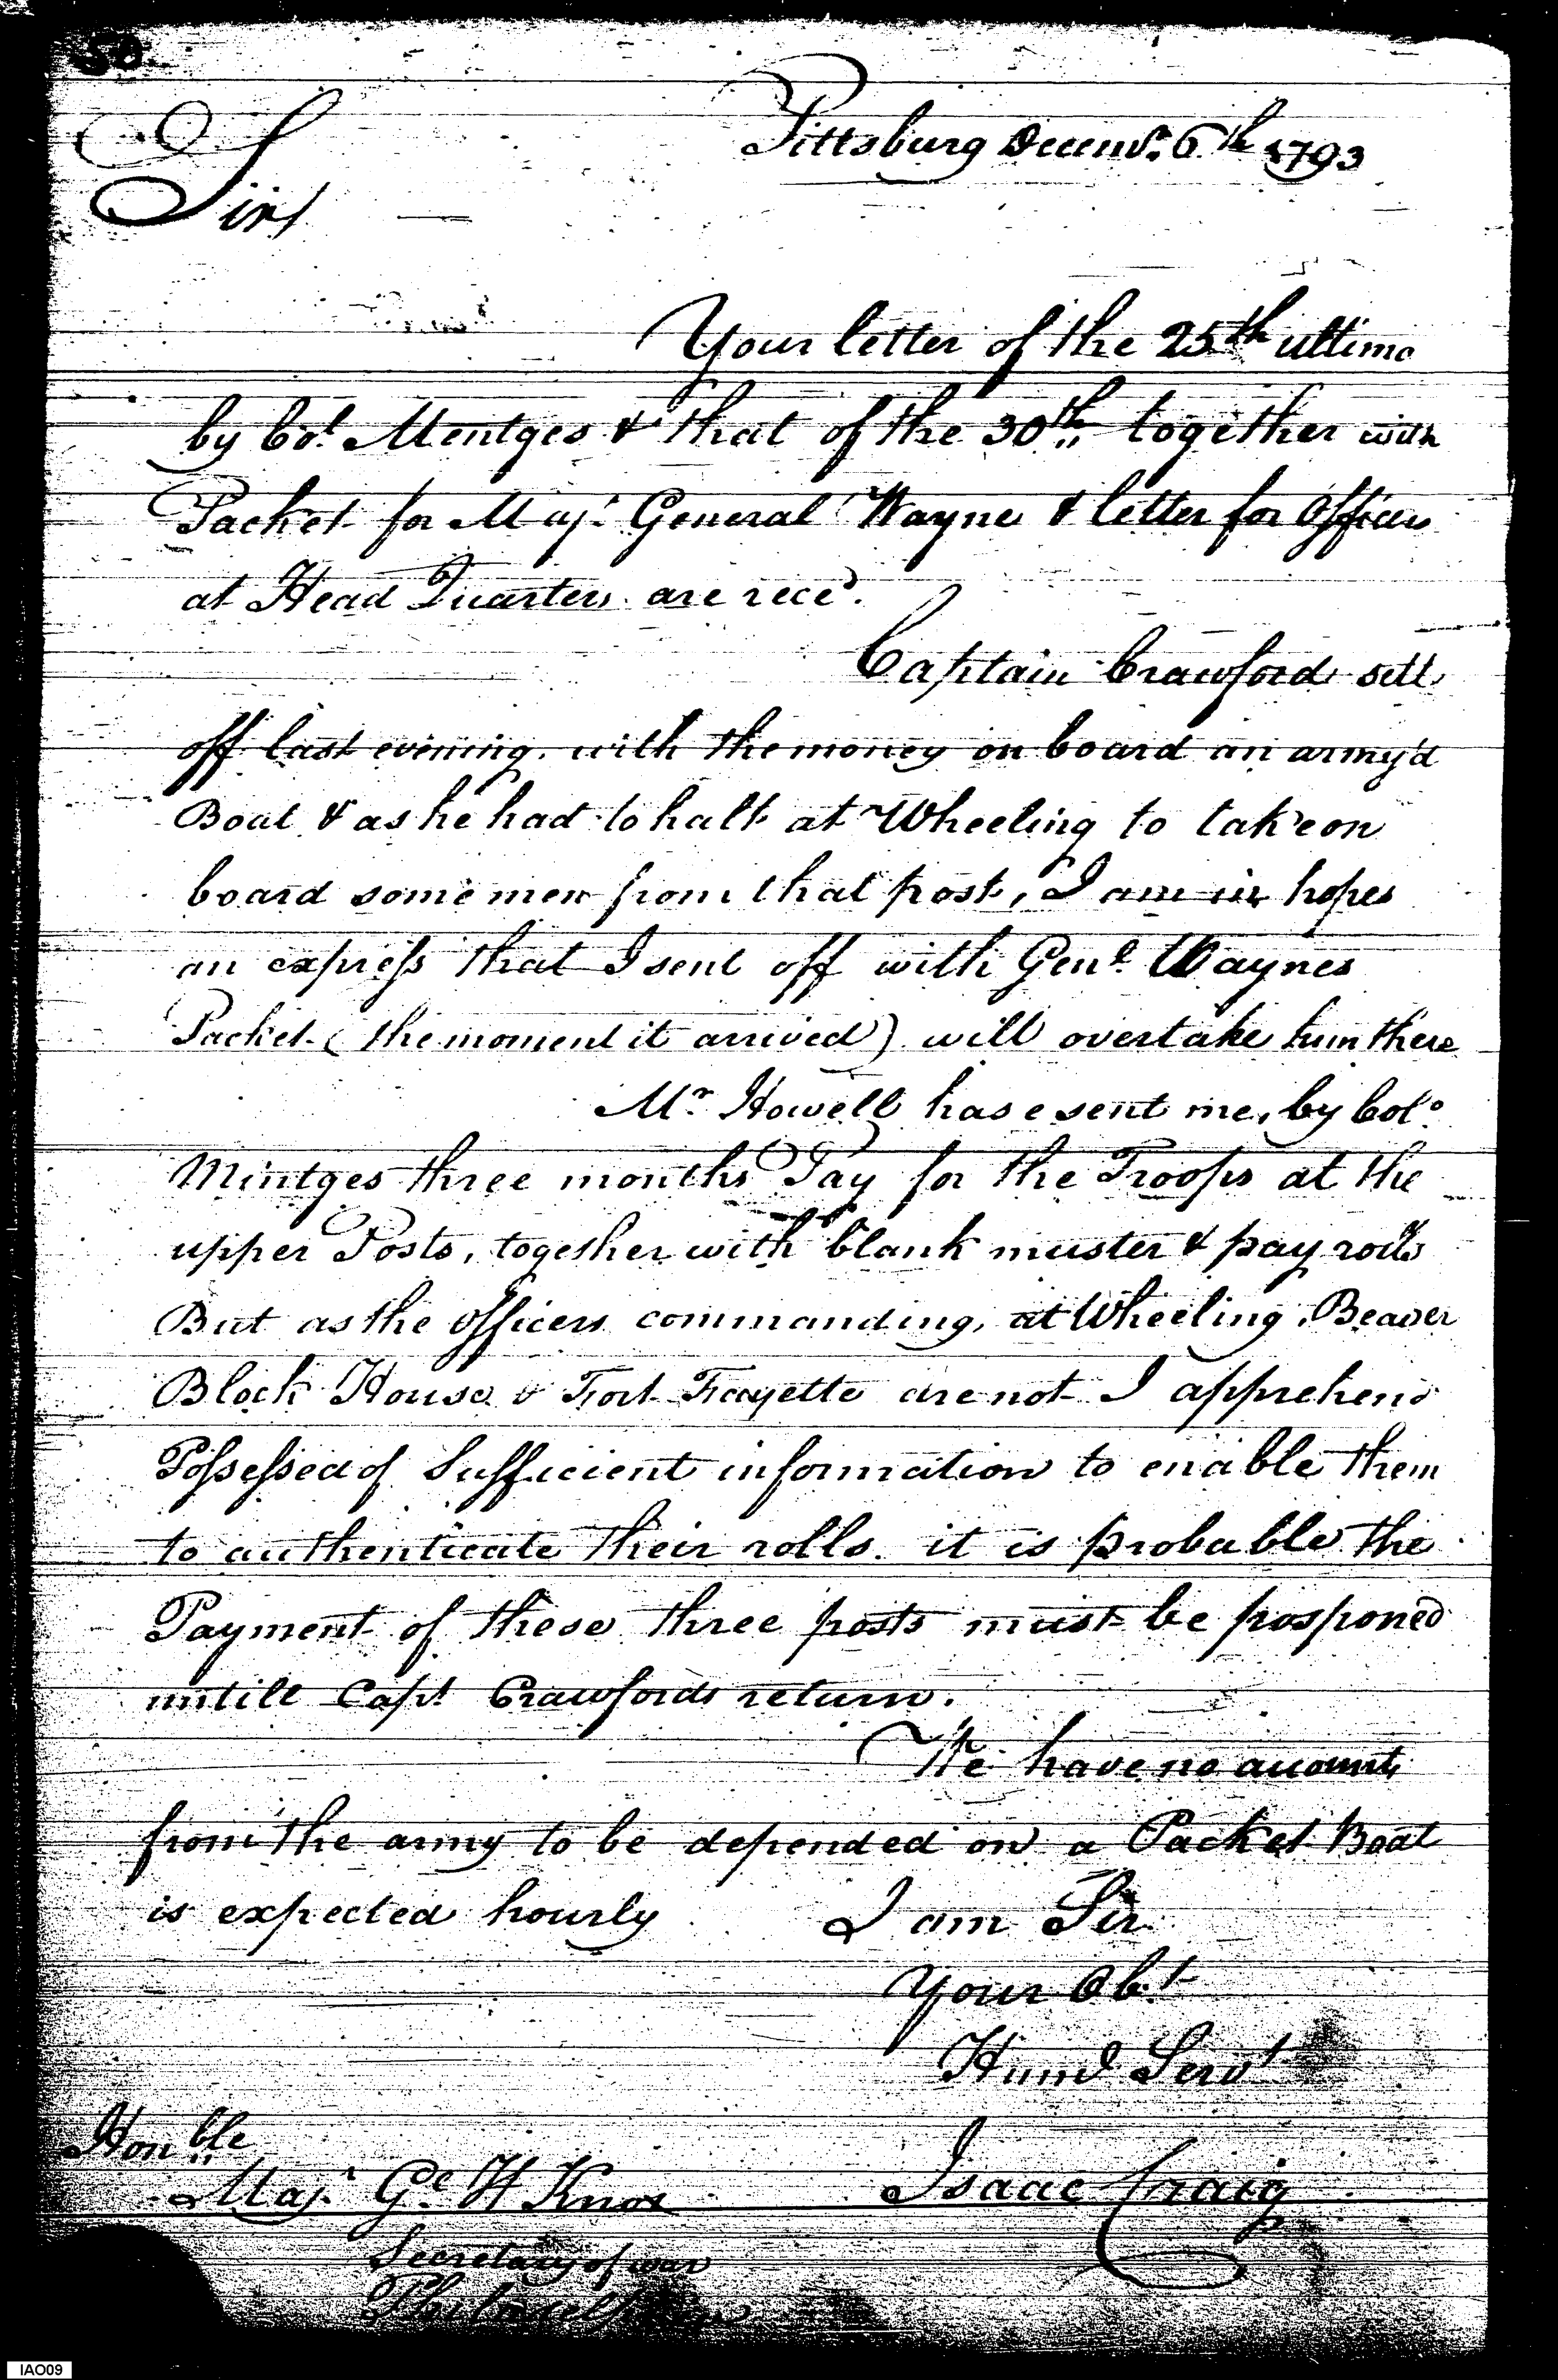 50
Pittsburg Decemr. 6th 1793
Sir/
Your letter of the 25th ultimo
by Col. Mentges & that of the 30th, together with
Packet for Majr. General Wayne & letter for Officers
at Head Quarters are recd.
Captain Crawford sett
off last evening with the money on board an army'd
Boat & as he had to halt at Wheeling to take on
board some men from that post, I am in hopes
an express that I sent off with Genl. Waynes
Packet (the moment it arrived) will overtake him there
Mr. Howell hase sent me, by Colo.
Mintges three months Pay for the Troops at the
upper Posts, together with blank muster & pay rolls
But as the officers commanding, at Wheeling, Beaver
Block House & Fort Fayette are not I apprehend
Possessed of Sufficient information to enable them
to authenticate their rolls. it is probable the
Payment of these three posts must be posponed
untill Capt Crawfords return.
We have no accounts
from the army to be depended on a Packet Boat
is expected hourly I am Sir
Your Obt
Huml Servt
Honble
Majr Gl H Knox Isaac Craig
Secretary of war
Philadelphia
IAO09